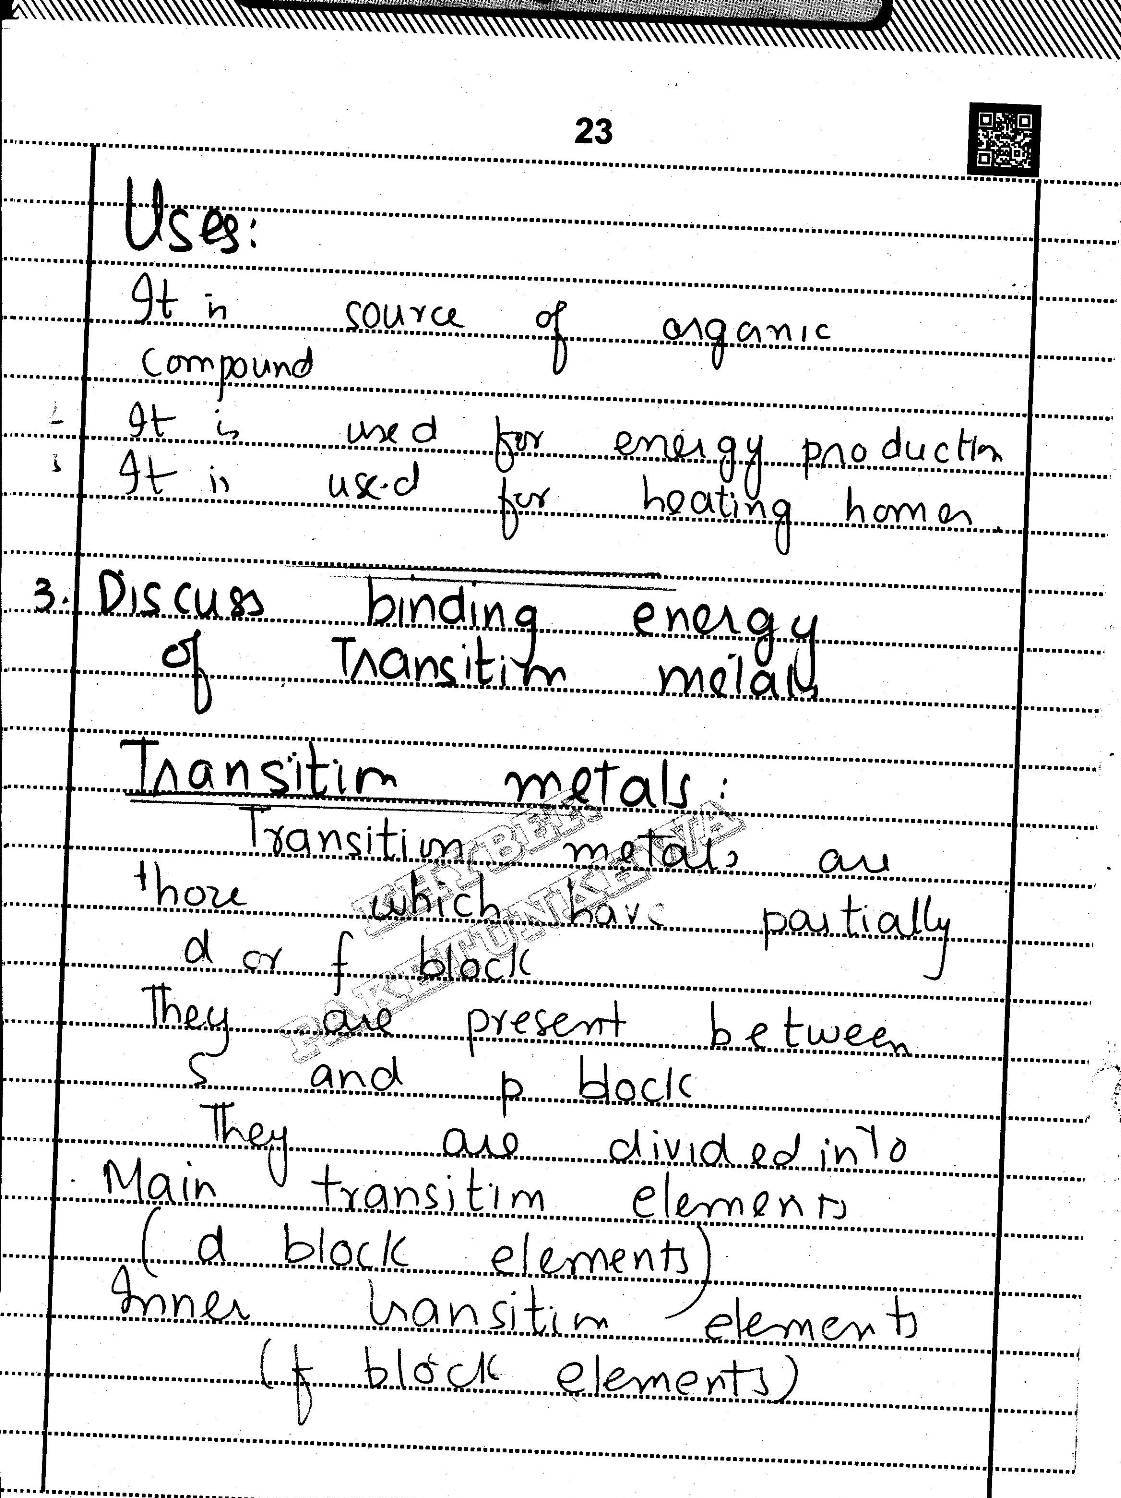 23
Uses:
It is source of organic
compound
It is used for energy production
It is used for heating homes.
3. Discuss binding energy
of Transition metals
Transition metals:
Transition metals are
those which have partially
d or f block
They are present between
s and p block
They are divided into
Main transition elements
(d block elements)
Inner transition elements
(f block elements)
KHYBER
PAKHTUNKHWA